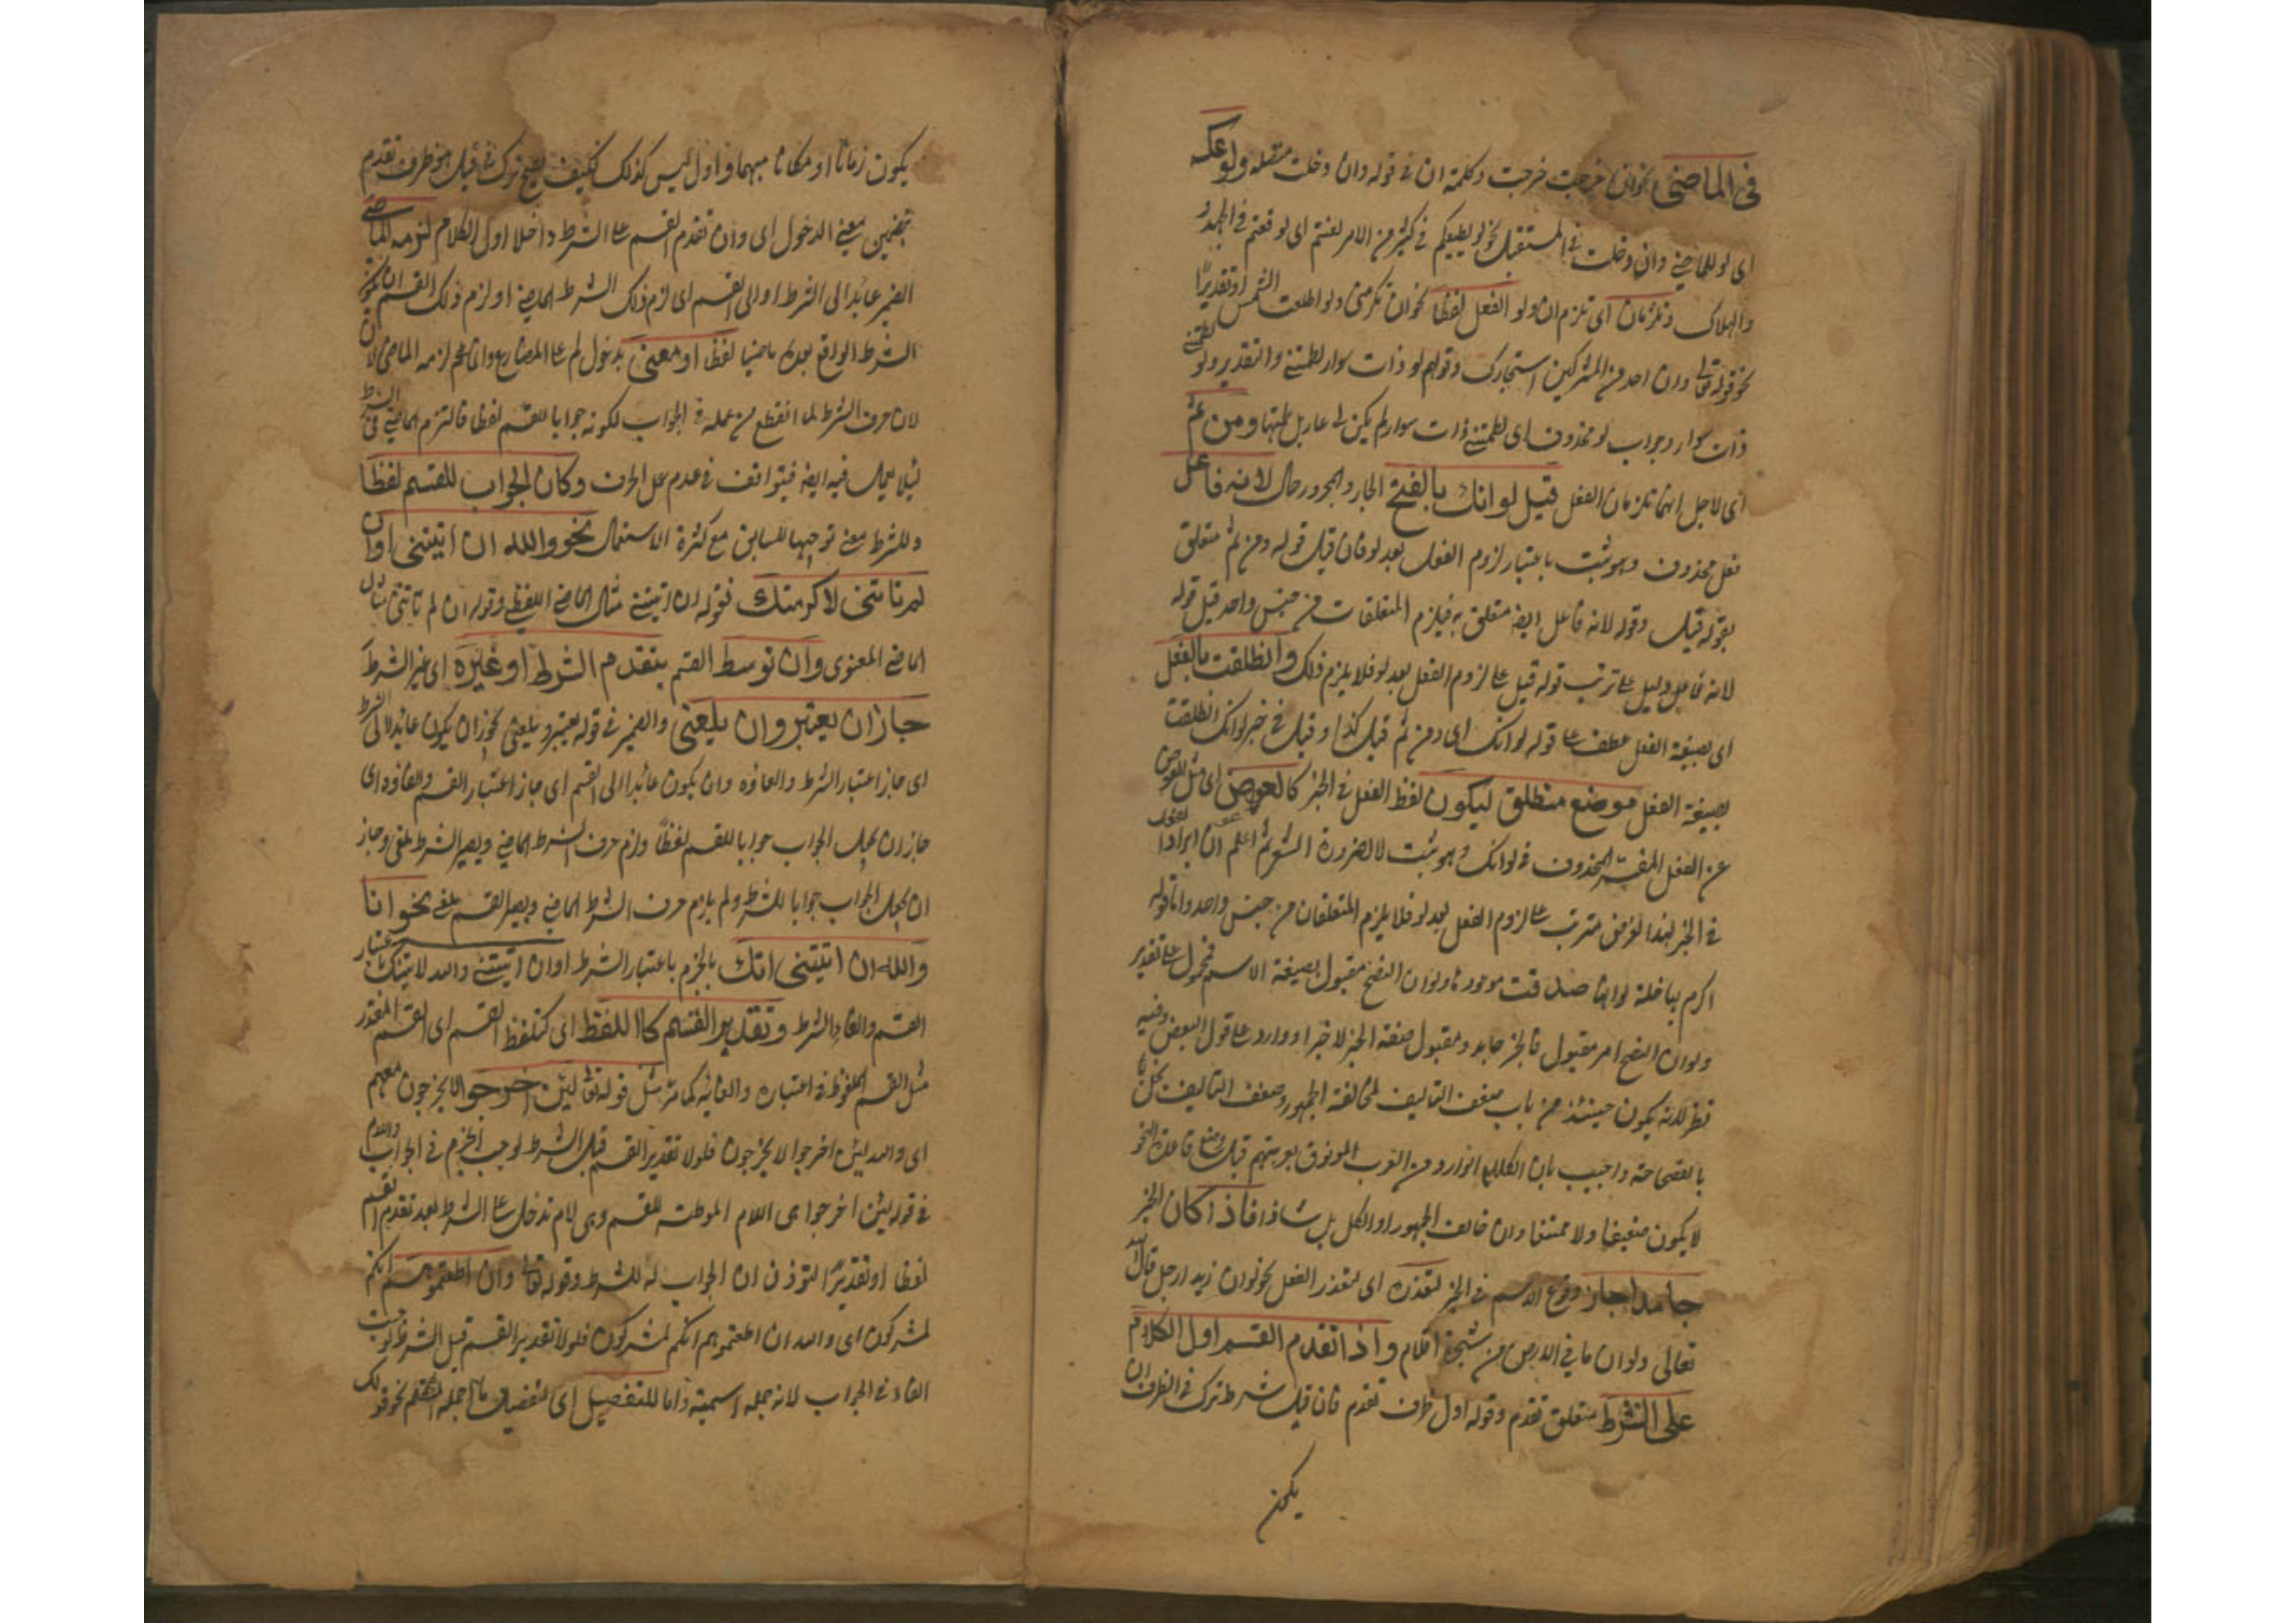 في الماضي نحو ان خرجت خرجت وكلمة ان في قوله وان دخلت متصلة ولو عكسه
اى لو للماضي وان دخلت في المستقبل نحو لو يطيعكم في كثير من الامر لعنتم اى لوقعتم في الجهد
والهلاك وتلزمان اى تلزم ان ولو الفعل لفظا نحو ان تكرمني ولو اطلعت الشمس او تقديرًا
نحو قوله تعالى وان احد من المشركين استجارك وقولهم لو ذات سوار لطمتني والتقدير ولو لطمتني
ذات سوار وجواب لو محذوف اى لطمتني ذات سوار لم يكن لى عار بل ومن ثم
اى لاجل انهما تلزمان الفعل قيل لو انك بالفتح الجار والمجرور حال لانه فاعل
فعل محذوف وهو ثبت باعتبار لزوم الفعل بعد لو فان قيل قوله ومن ثم متعلق
بقوله قيل وقوله لانه فاعل ايضا متعلق به فيلزم المتعلقات من جنس واحد قيل قوله
لانه فاعل دليل على ترتب قوله قيل على لزوم الفعل بعد لو فلا يلزم ذلك وانطلقت بالفعل
اى بصيغة الفعل عطف على قوله لو انك اى ومن ثم قيل كذا وقيل في خبر لو انك انطلقت
بصيغة الفعل موضع منطلق ليكون لفظ الفعل في الخبر كالعوض اى مثل العوض
عن الفعل المفسر المحذوف في لو انك وهو ثبت لا لضرورة الشعر ثم اعلم ان ايراد الفعل
في الخبر لهذا الغرض مترتب على لزوم الفعل بعد لو فلا يلزم المتعلقان من جنس واحد واما قوله
اكرم بها خلة لو انها صدقت موعودها ولو ان النصح مقبول بصيغة الاسم فمحمول على تقدير
ولو ان النصح امر مقبول فالخبر جامد ومقبول صفة الخبر لا خبر او وارد على قول البعض وفيه
نظر لانه يكون حينئذ من باب ضعف التاليف لمخالفة الجمهور وضعف التاليف يخل
بالفصاحة واجيب بان الكلام الوارد من العرب الموثوق بعربيتهم قبل وضع قاعدة النحو
لا يكون ضعيفا ولا ممتنعا وان خالف الجمهور او الكل بل شاذا فاذا كان الخبر
جامدا جاز وقوع الاسم في الخبر لتعذره اى لتعذر الفعل نحو لو ان زيد ارجل قال الله
تعالى ولو ان ما في الارض من شجرة اقلام واذا تقدم القسم اول الكلام
على الشرط متعلق تقدم وقوله اول ظرف تقدم فان قيل شرط ترك في الظرف ان
يكون
يكون زمانا او مكانا مبهما واول ليس كذلك فكيف يصح ترك في قيل هو ظرف تقدم
بتضمين معنى الدخول اى وان تقدم القسم على الشرط داخلا اول الكلام لزمه الماضي
الضمير عائد الى الشرط او الى القسم اى لزم ذلك الشرط الماضي او لزم ذلك القسم ان يكون
الشرط الواقع بعده ماضيا لفظا او معنى بدخول لم على المضارع وانما لزمه الماضي لان
لان حرف الشرط لما انقطع من عمله في الجواب لكونه جوابا للقسم لفظا فالتزم الماضي في الشرط
ليلا يعمل فيه ايضا فيتوافق في عدم عمل الحرف وكان الجواب للقسم لفظا
وللشرط معنى توجيها للسابق مع كثرة الاستعمال نحو والله ان اتيتني او ان
لم تاتني لاكرمتك فقوله ان اتيتني مثال الماضي اللفظي وقوله ان لم تاتني مثال
الماضي المعنوى وان توسط القسم بتقدم الشرط او غيره اى غير الشرط
جاز ان يعتبر وان يلغى والضمير في قوله يعتبر ويلغى يجوز ان يكون عائدا الى الشرط
اى جاز اعتبار الشرط والغاؤه وان يكون عائدا الى القسم اى جاز اعتبار القسم والغاؤه اى
جاز ان يجعل الجواب جوابا للقسم لفظا ولزم حرف الشرط الماضي ويصير الشرط ملغى وجاز
ان يجعل الجواب جوابا للشرط ولم يلزم حرف الشرط الماضي ويصير القسم ملغى نحو انا
والله ان اتيتني اتك بالجزم باعتبار الشرط او ان اتيتني والله لاتينك باعتبار
القسم والغاء الشرط وتقدير القسم كاللفظ اى كتلفظ القسم اى القسم المقدر
مثل القسم الملفوظ في اعتباره والغائه كما مر مثل قوله تعالى لئن اخرجوا لا يخرجون معهم
اى والله لئن اخرجوا لا يخرجون فلولا تقدير القسم قبل الشرط لوجب الجزم في الجواب واللام
في قوله لئن اخرجوا هى اللام الموطئة للقسم وهى لام تدخل على الشرط بعد تقدم القسم
لفظا او تقديرًا لتؤذن ان الجواب له لا للشرط وقوله تعالى وان اطعتموهم انكم
لمشركون اى والله ان اطعتموهم انكم لمشركون فلولا تقدير القسم قبل الشرط لوجبت
الفاء في الجواب لانه جملة اسمية واما للتفصيل اى لتفصيل ما اجمله المتكلم نحو قولك